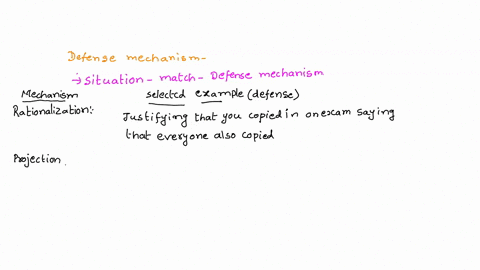 Defense mechanism-
→ situation - match - Defense mechanism
Mechanism selected example (defense)
Rationalization:- Justifying that you copied in one exam saying
that everyone else copied
Projection